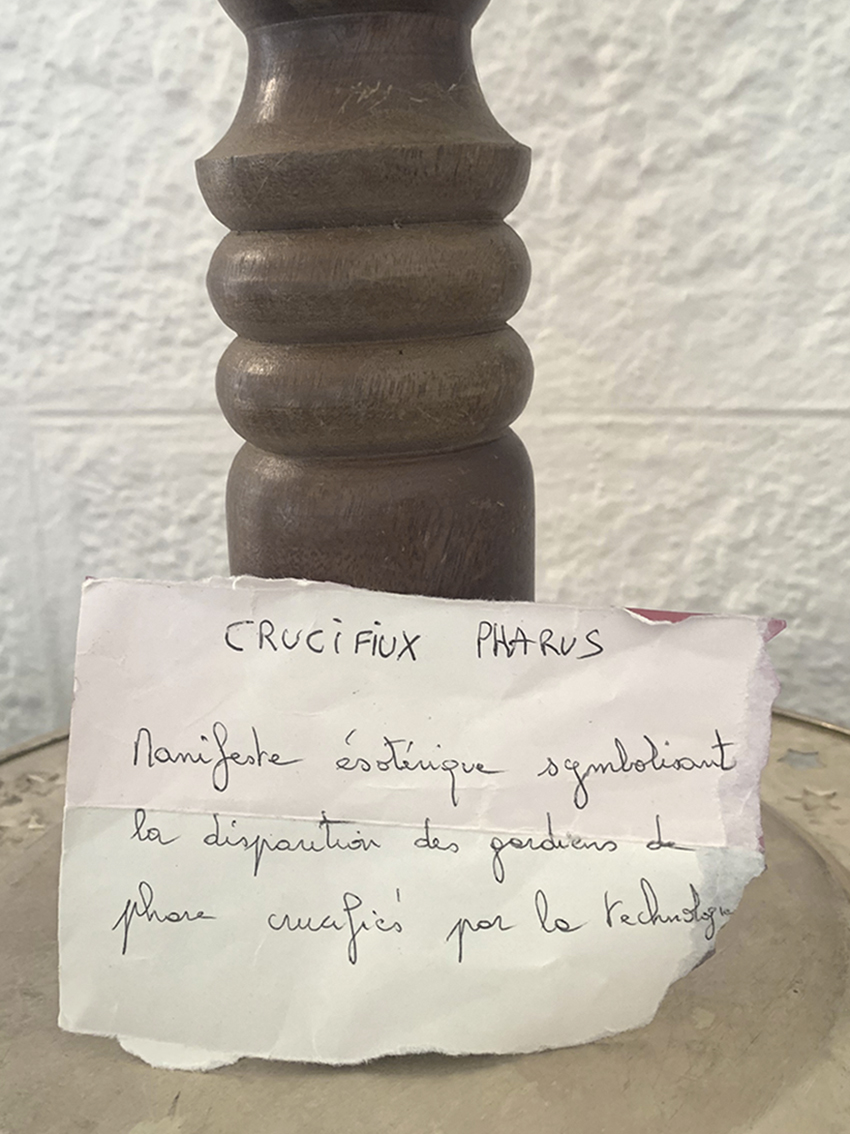 CRUCIFIUX PHARUS
Manifeste ésotérique symbolisant
la disparition des gardiens de
phare crucifiés par la technologie